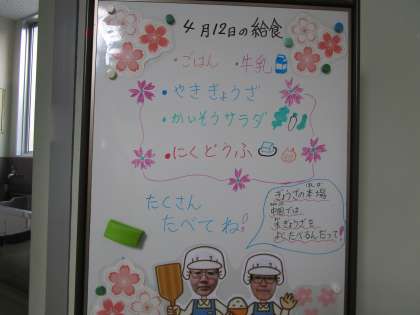 4月12日の給食
・ごはん ・牛乳
・やきぎょうざ
・かいそうサラダ
・にくどうふ
たくさん
たべてね!
ぎょうざの本場
中国では、
水ぎょうざを
よくたべるんだって!